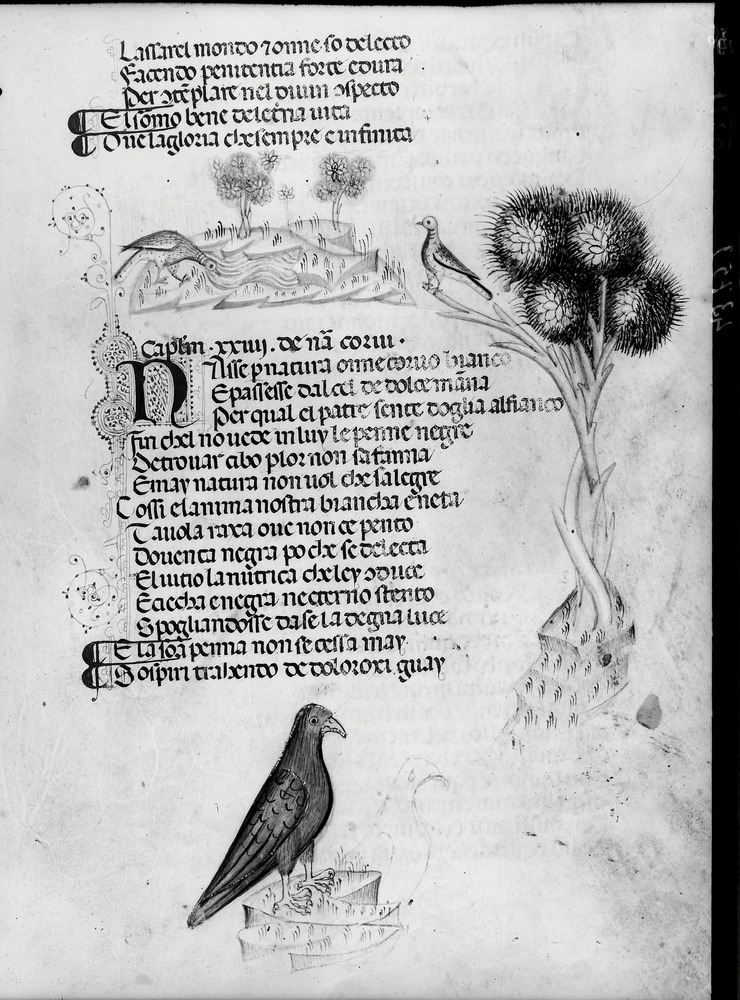 Lassarel mondo ⁊ onne so delecto
Facendo penitentia forte e dura
Per ↄtēplare nel diuin ↄspecto
El somo bene de leterna uita
Oue la gloria che sempre e infinita
Caplm .xxiiij. de nā corui.
Nasse p natura onne coruo bianco
E passesse dal cel de dolce māna
Per qual el patre sente doglia al fianco
Fin chel no uede in luy le penne negre
De trouar cibo plor non saffanna
E may natura non uol che salegre
Cossi el anima nostra biancha e neta
Tauola raxa oue non e pento
Douenta negra po che se delecta
El uitio la nutrica che ley ↄduce
E ciecha e negra necterno stento
Spogliandosse da se la degna luce
E la soa penna non se cessa may
Sospiri trahendo de doloroxi guay